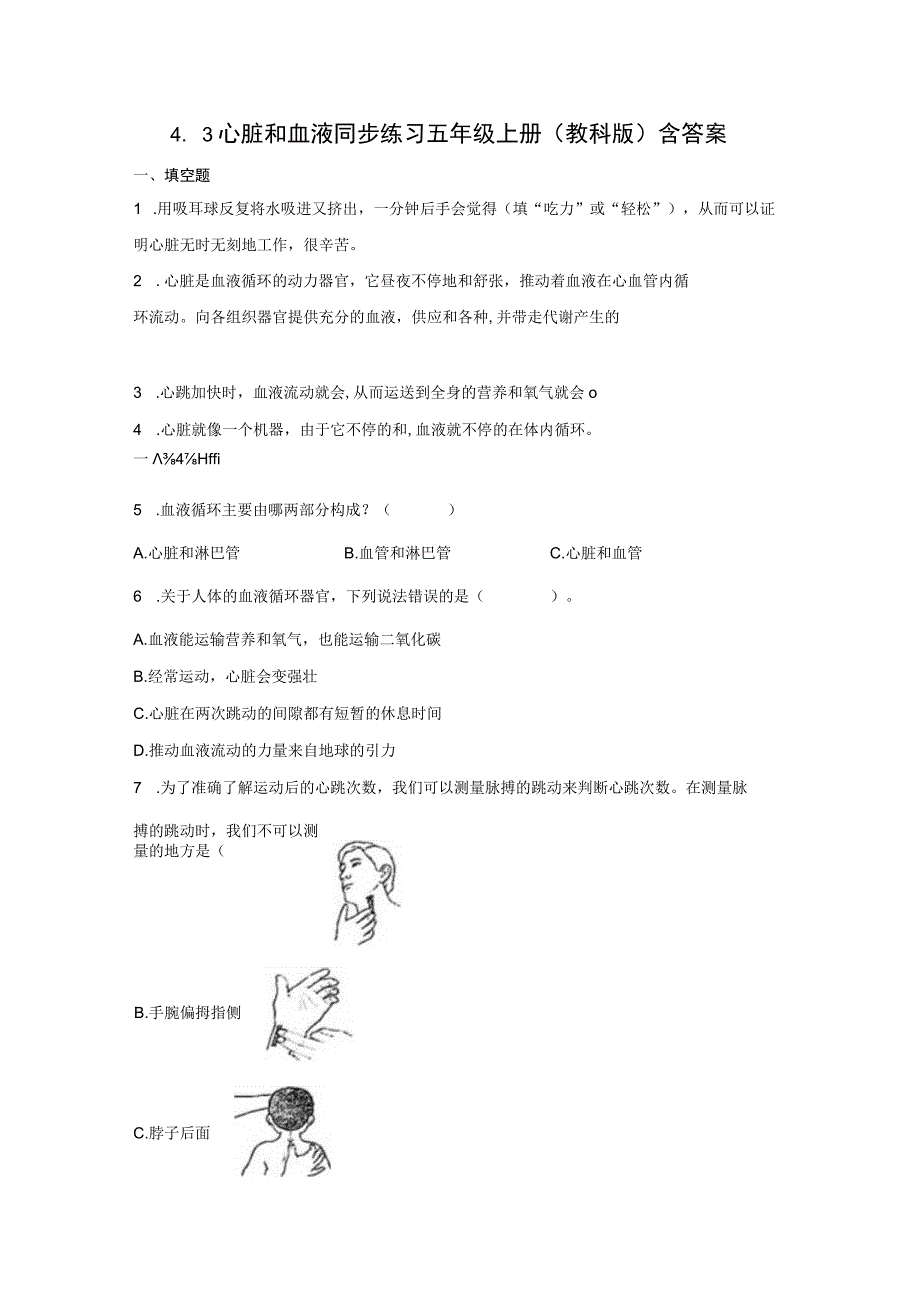 4. 3心脏和血液同步练习五年级上册（教科版）含答案
一、填空题
1 .用吸耳球反复将水吸进又挤出，一分钟后手会觉得（填“吃力”或“轻松”），从而可以证
明心脏无时无刻地工作，很辛苦。
2 .心脏是血液循环的动力器官，它昼夜不停地和舒张，推动着血液在心血管内循
环流动。向各组织器官提供充分的血液，供应和各种,并带走代谢产生的
3 .心跳加快时，血液流动就会,从而运送到全身的营养和氧气就会o
4 .心脏就像一个机器，由于它不停的和,血液就不停的在体内循环。
一 Λ⅜4⅞Hffi
5 .血液循环主要由哪两部分构成？（ ）
A.心脏和淋巴管 B.血管和淋巴管 C.心脏和血管
6 .关于人体的血液循环器官，下列说法错误的是（ ）。
A.血液能运输营养和氧气，也能运输二氧化碳
B.经常运动，心脏会变强壮
C.心脏在两次跳动的间隙都有短暂的休息时间
D.推动血液流动的力量来自地球的引力
7 .为了准确了解运动后的心跳次数，我们可以测量脉搏的跳动来判断心跳次数。在测量脉
搏的跳动时，我们不可以测
量的地方是（
B.手腕偏拇指侧
C.脖子后面